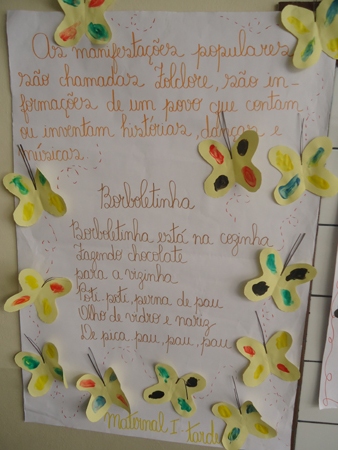 As manifestações populares
são chamadas Folclore, são in-
formações de um povo que contam
ou inventam histórias, danças e
músicas.
Borboletinha
Borboletinha está na cozinha
Fazendo chocolate
para a vizinha
Pote pote, perna de pau
Olho de vidro e nariz
De pica pau, pau, pau
Maternal I tarde